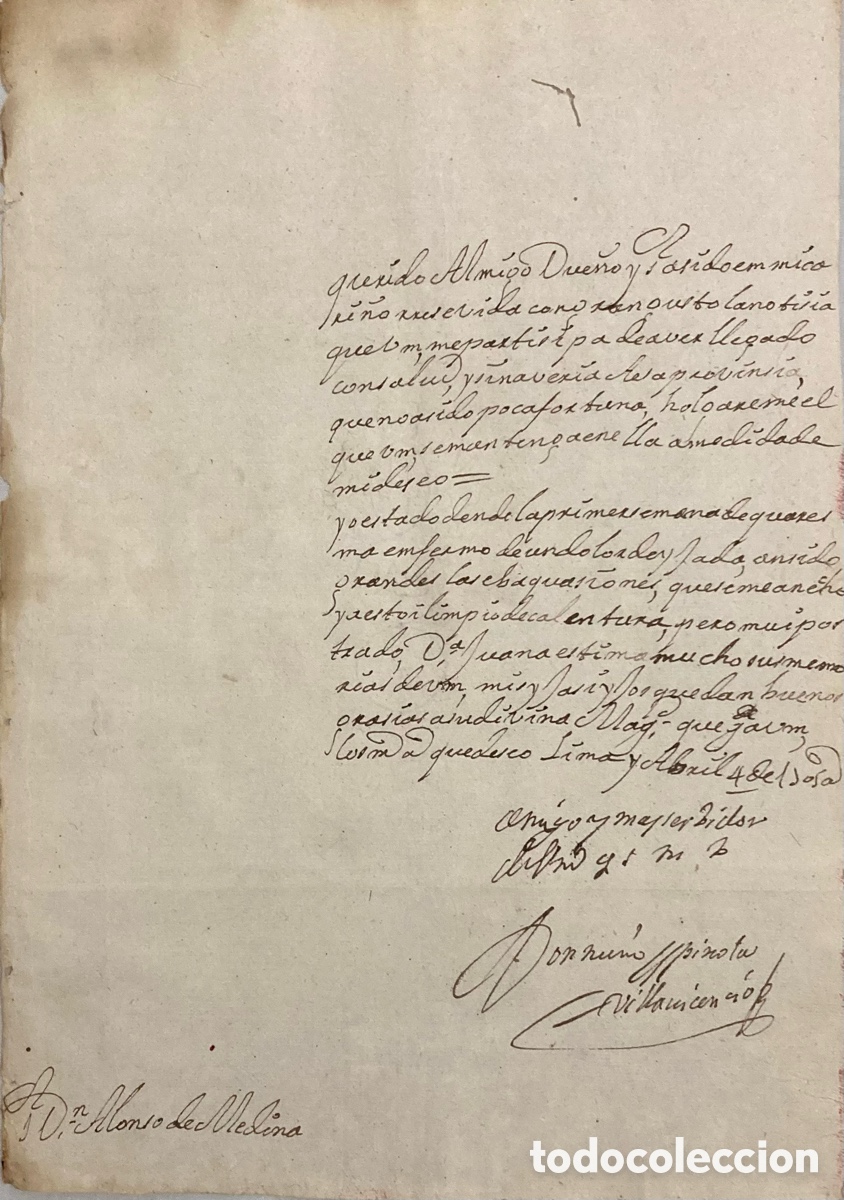 querido Amigo Dueño y S asido em mi ca
riño rresevida con gran gusto la notisia
que Vm, me partisipa de aver llegado
con salud, y sin averia de sa provinsia,
que no a sido poca fortuna, holgareme el
que Vm, se mantenga en ella a medida de
mi deseo =
yo estado dende la primer semana de quares
ma emfermo de un dolor de yjada, an sido
grandes las ebaquasiones, que se me an echo
ya estoi limpio de calentura, pero mui pos
trado, D.ª Juana estima mucho sus memo
rias de vm, mis yjas i yjos quedan buenos
grasias a su divina Mag,- que g a vm,
los m a que deseo Lima y Abril 4 de
amigo y mayor serbidor
de Vmd q s m b
Don nuño sspinola
Villavicencio
A
S D.n Alonso de Medina
todocoleccion